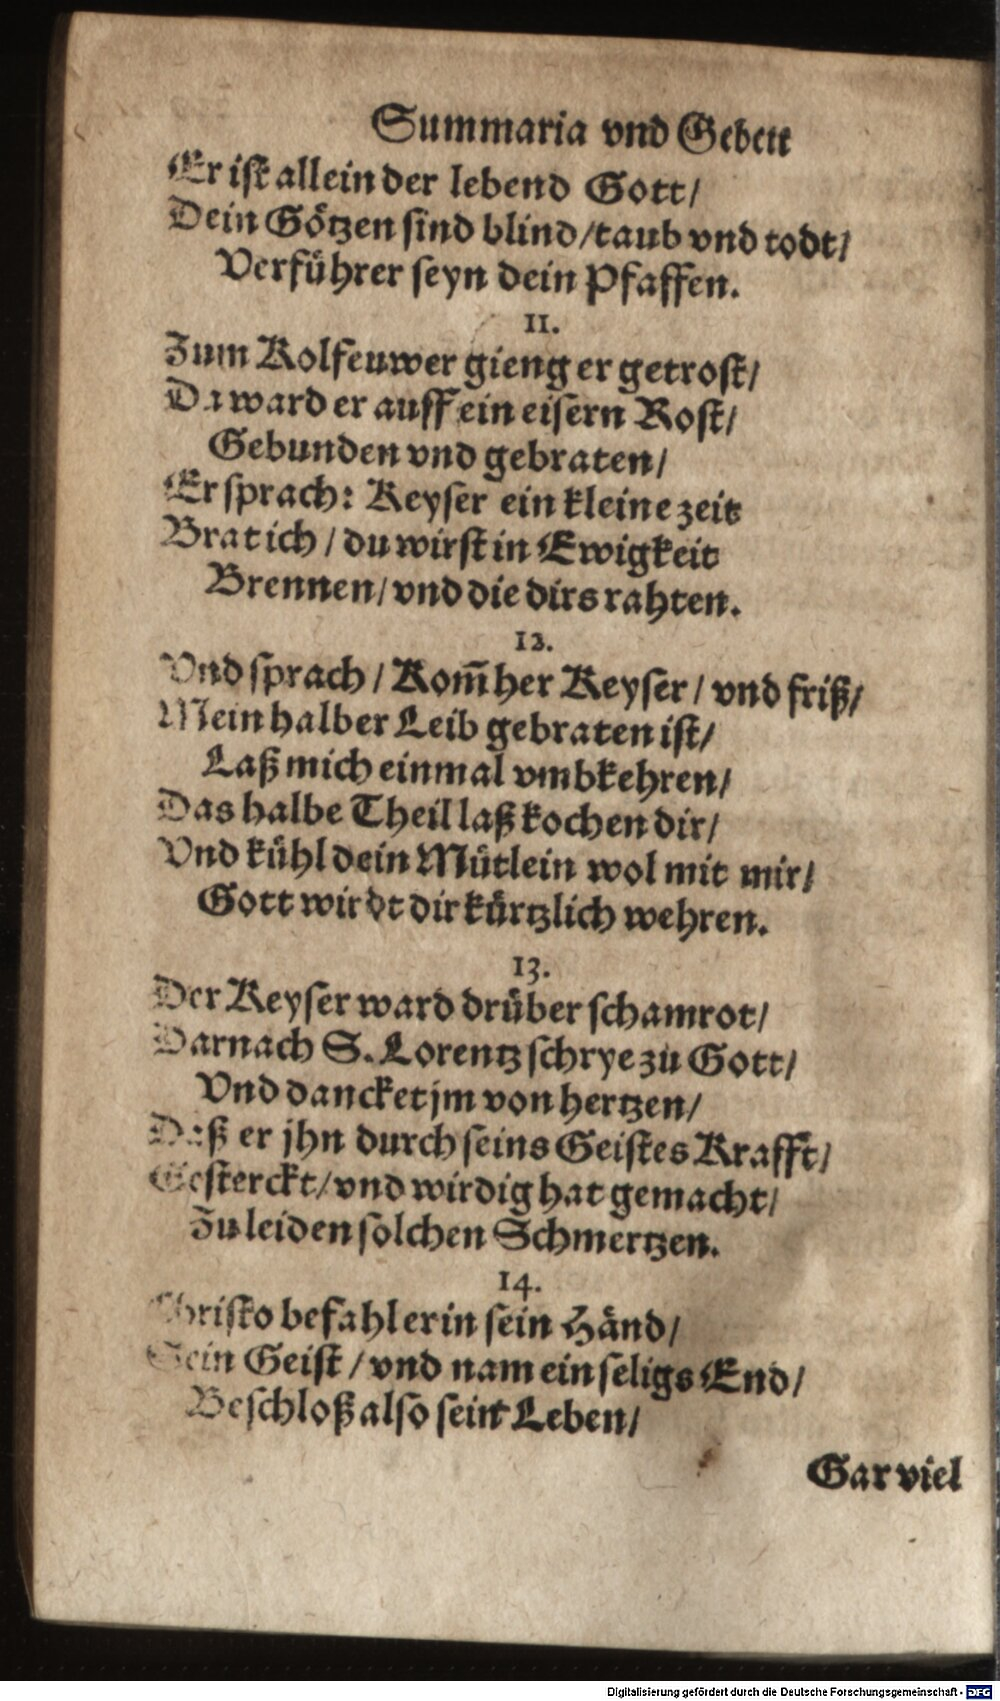 Summaria vnd Gebett
Er iſt allein der lebend Gott/
Dein Götzen ſind blind/taub vnd todt/
Verführer ſeyn dein Pfaffen.
11.
Zum Kolfeuwer gieng er getroſt/
Da ward er auff ein eiſern Roſt/
Gebunden vnd gebraten/
Er ſprach: Keyſer ein kleine zeit
Brat ich / du wirſt in Ewigkeit
Brennen/ vnd die dirs rahten.
12.
Vnd ſprach / Kom̃ her Keyſer / vnd friß/
Mein halber Leib gebraten iſt/
Laß mich einmal vmbkehren/
Das halbe Theil laß kochen dir/
Vnd kühl dein Mütlein wol mit mir/
Gott wirdt dir kürtzlich wehren.
13.
Der Keyſer ward drüber ſchamrot/
Darnach S. Lorentz ſchrye zu Gott/
Vnd dancket jm von hertzen/
Daß er jhn durch ſeins Geiſtes Krafft/
Geſterckt/ vnd wirdig hat gemacht/
Zu leiden ſolchen Schmertzen.
14.
Chriſto befahl er in ſein Händ/
Sein Geiſt / vnd nam ein ſeligs End/
Beſchloß alſo ſein Leben/
Gar viel
Digitalisierung gefördert durch die Deutsche Forschungsgemeinschaft - DFG